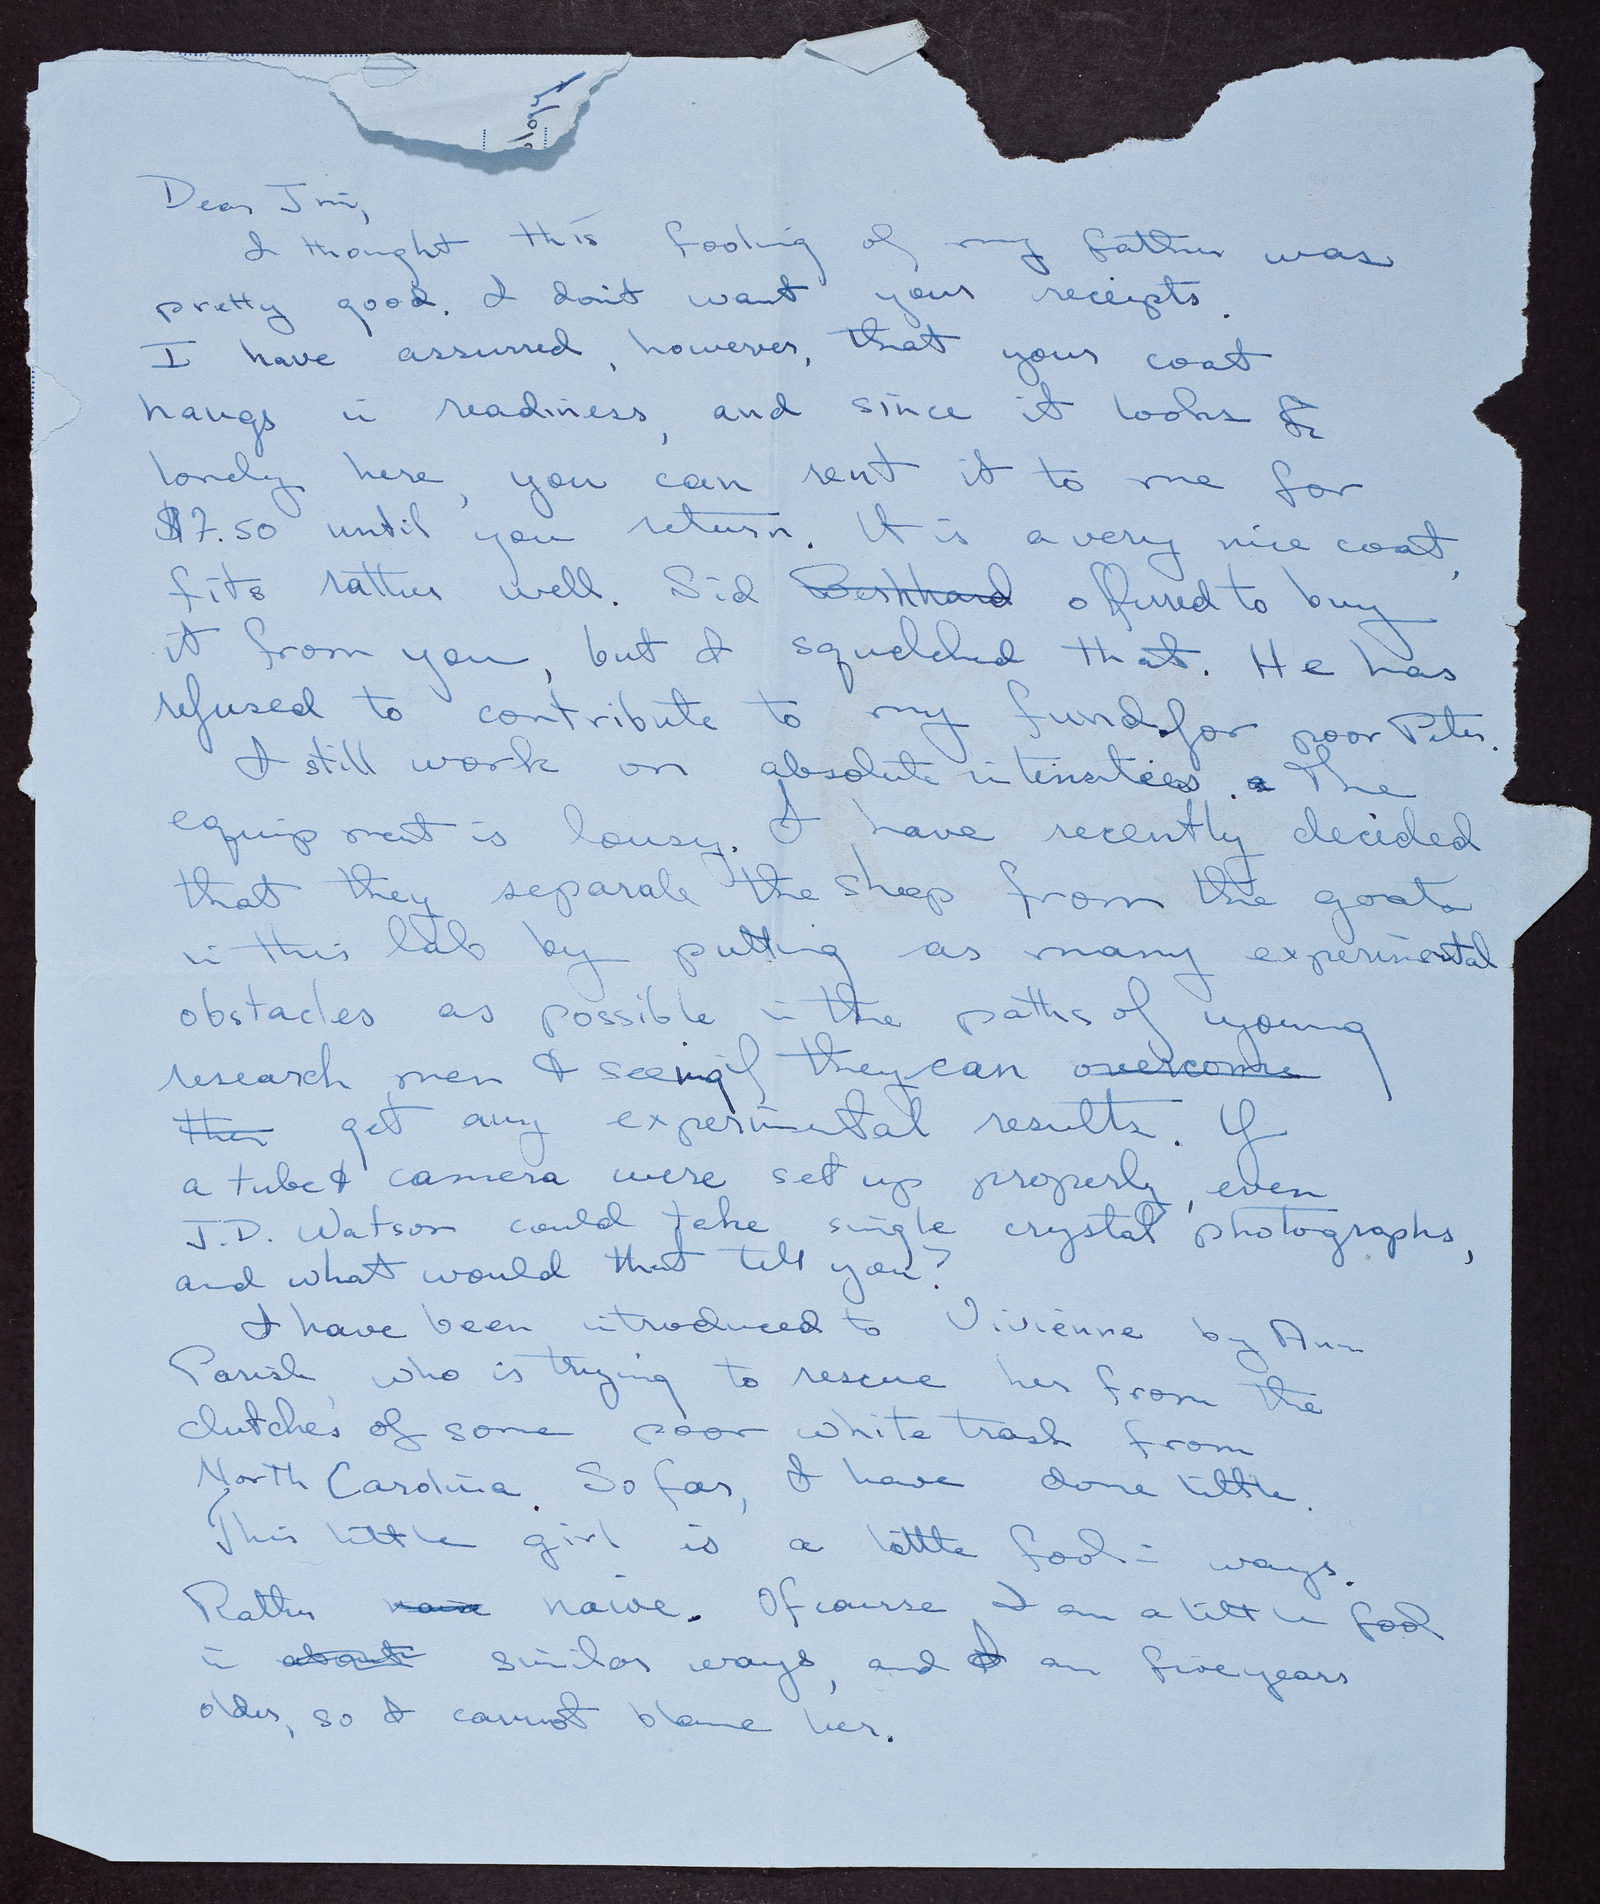 Dear Jim,
I thought this fooling of my father was
pretty good. I don't want your receipts.
I have assurred, however, that your coat
hangs in readiness, and since it looks
lonely here, you can rent it to me for
$7.50 until you return. It is a very nice coat,
fits rather well. Sid offered to buy
it from you, but I squelched that. He has
refused to contribute to my fund for poor Peter.
I still work on absolute intensities. The
equipment is lousy. I have recently decided
that they separate the sheep from the goats
in this lab by putting as many experimental
obstacles as possible in the paths of young
research men & seeing if they can overcome
them get any experimental results. If
a tube & camera were set up properly, even
J.D. Watson could take single crystal photographs,
and what would that tell you?
I have been introduced to Vivienne by Ann
Parish, who is trying to rescue her from the
clutches of some poor white trash from
North Carolina. So far, I have done little.
This little girl is a little fool in ways.
Rather naive naive. Of course, I am a little fool
in about similar ways, and I am five years
older, so I cannot blame her.